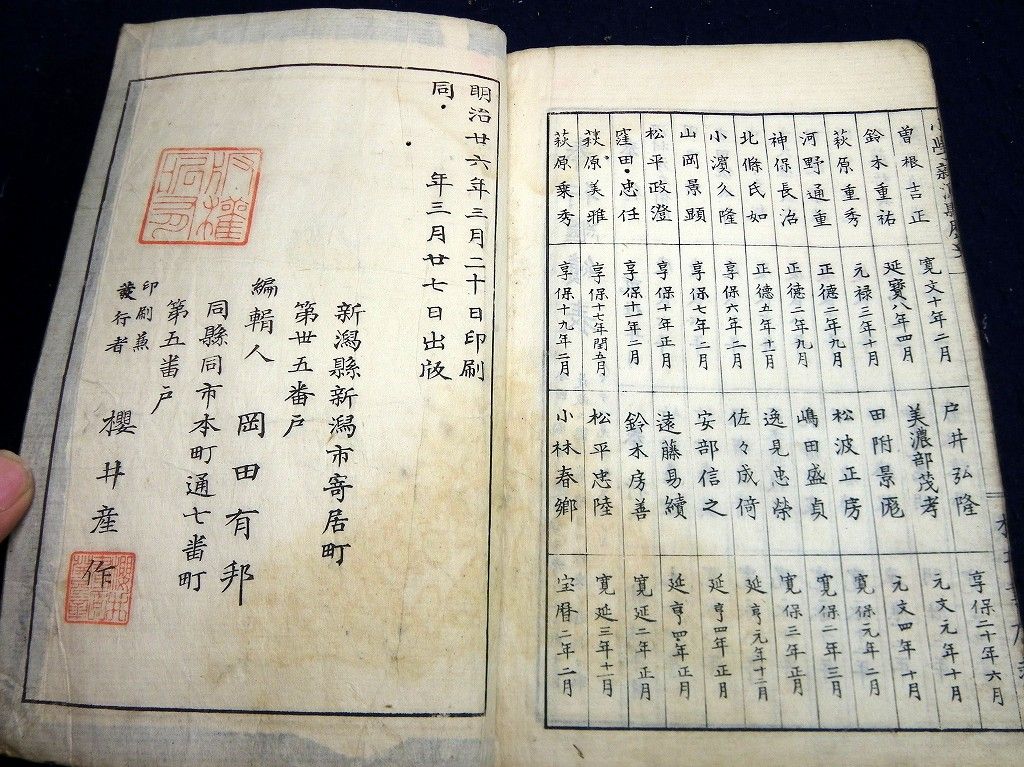 曽根吉正
鈴木重祐
萩原重秀
河野通重
神保長治
北條氏如
小濱久隆
山岡景顕
松平政澄
窪田忠任
萩原美雅
萩原乗秀
寛文十年二月
延寳八年四月
元禄三年十月
正德二年九月
正德二年九月
正德五年十一月
享保六年二月
享保七年二月
享保十年正月
享保十一年二月
享保十七年閏五月
享保十九年二月
戸井弘隆
美濃部茂孝
田附景
松波正房
嶋田盛貞
逸見忠榮
佐々成倚
安部信之
遠藤易續
鈴木房善
松平忠陸
小林春郷
享保二十年六月
元文元年十月
元文四年十月
寛保元年二月
寛保二年三月
寛保三年正月
延亨元年十二月
延亨四年正月
延亨四年正月
寛延二年正月
寛延三年十一月
宝暦二年二月
明治廿六年三月二十日印刷
同 年三月廿七日出版
新潟縣新潟市寄居町
第卅五番戸
編輯人 岡田有邦
同縣同市本町通七番町
第五番戸
印刷兼
發行者 櫻井産作
版權
所有